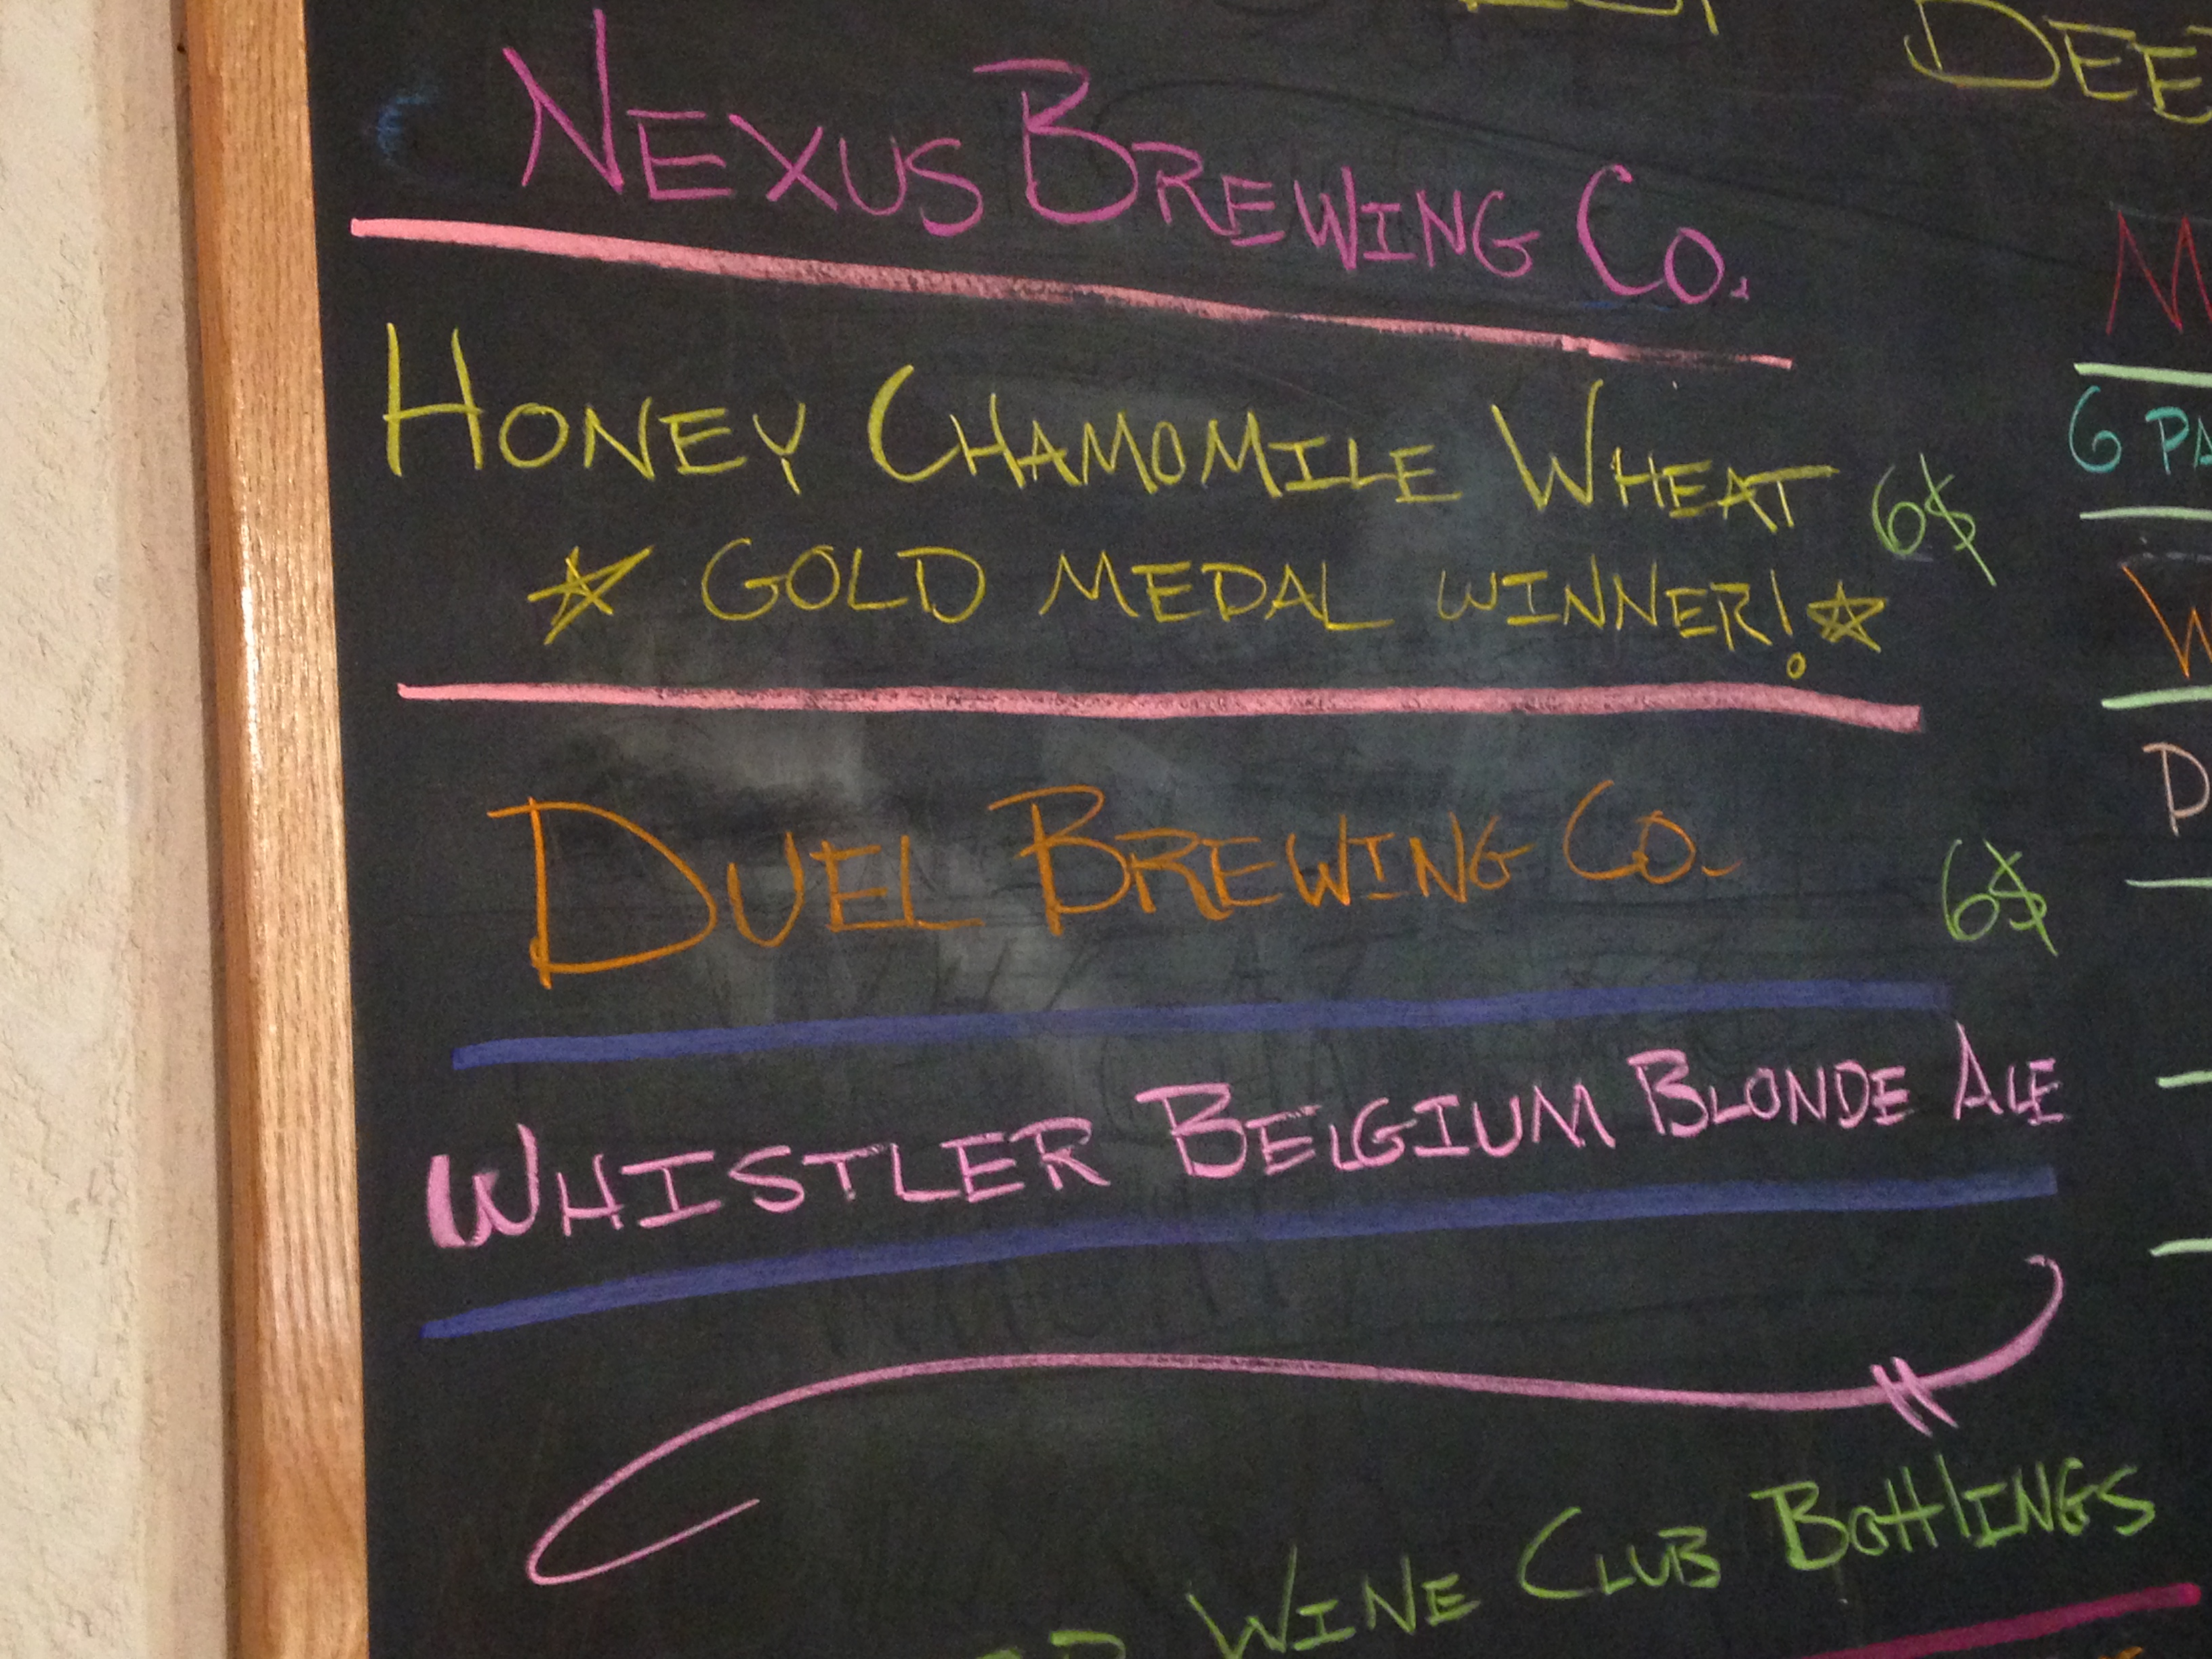 NEXUS BREWING CO.
HONEY CHAMOMILE WHEAT 6$
GOLD MEDAL WINNER!
DUEL BREWING CO.
6$
WHISTLER BELGIUM BLONDE ALE
WINE CLUB BOTTLINGS
DEE
M
6 PA
W
D